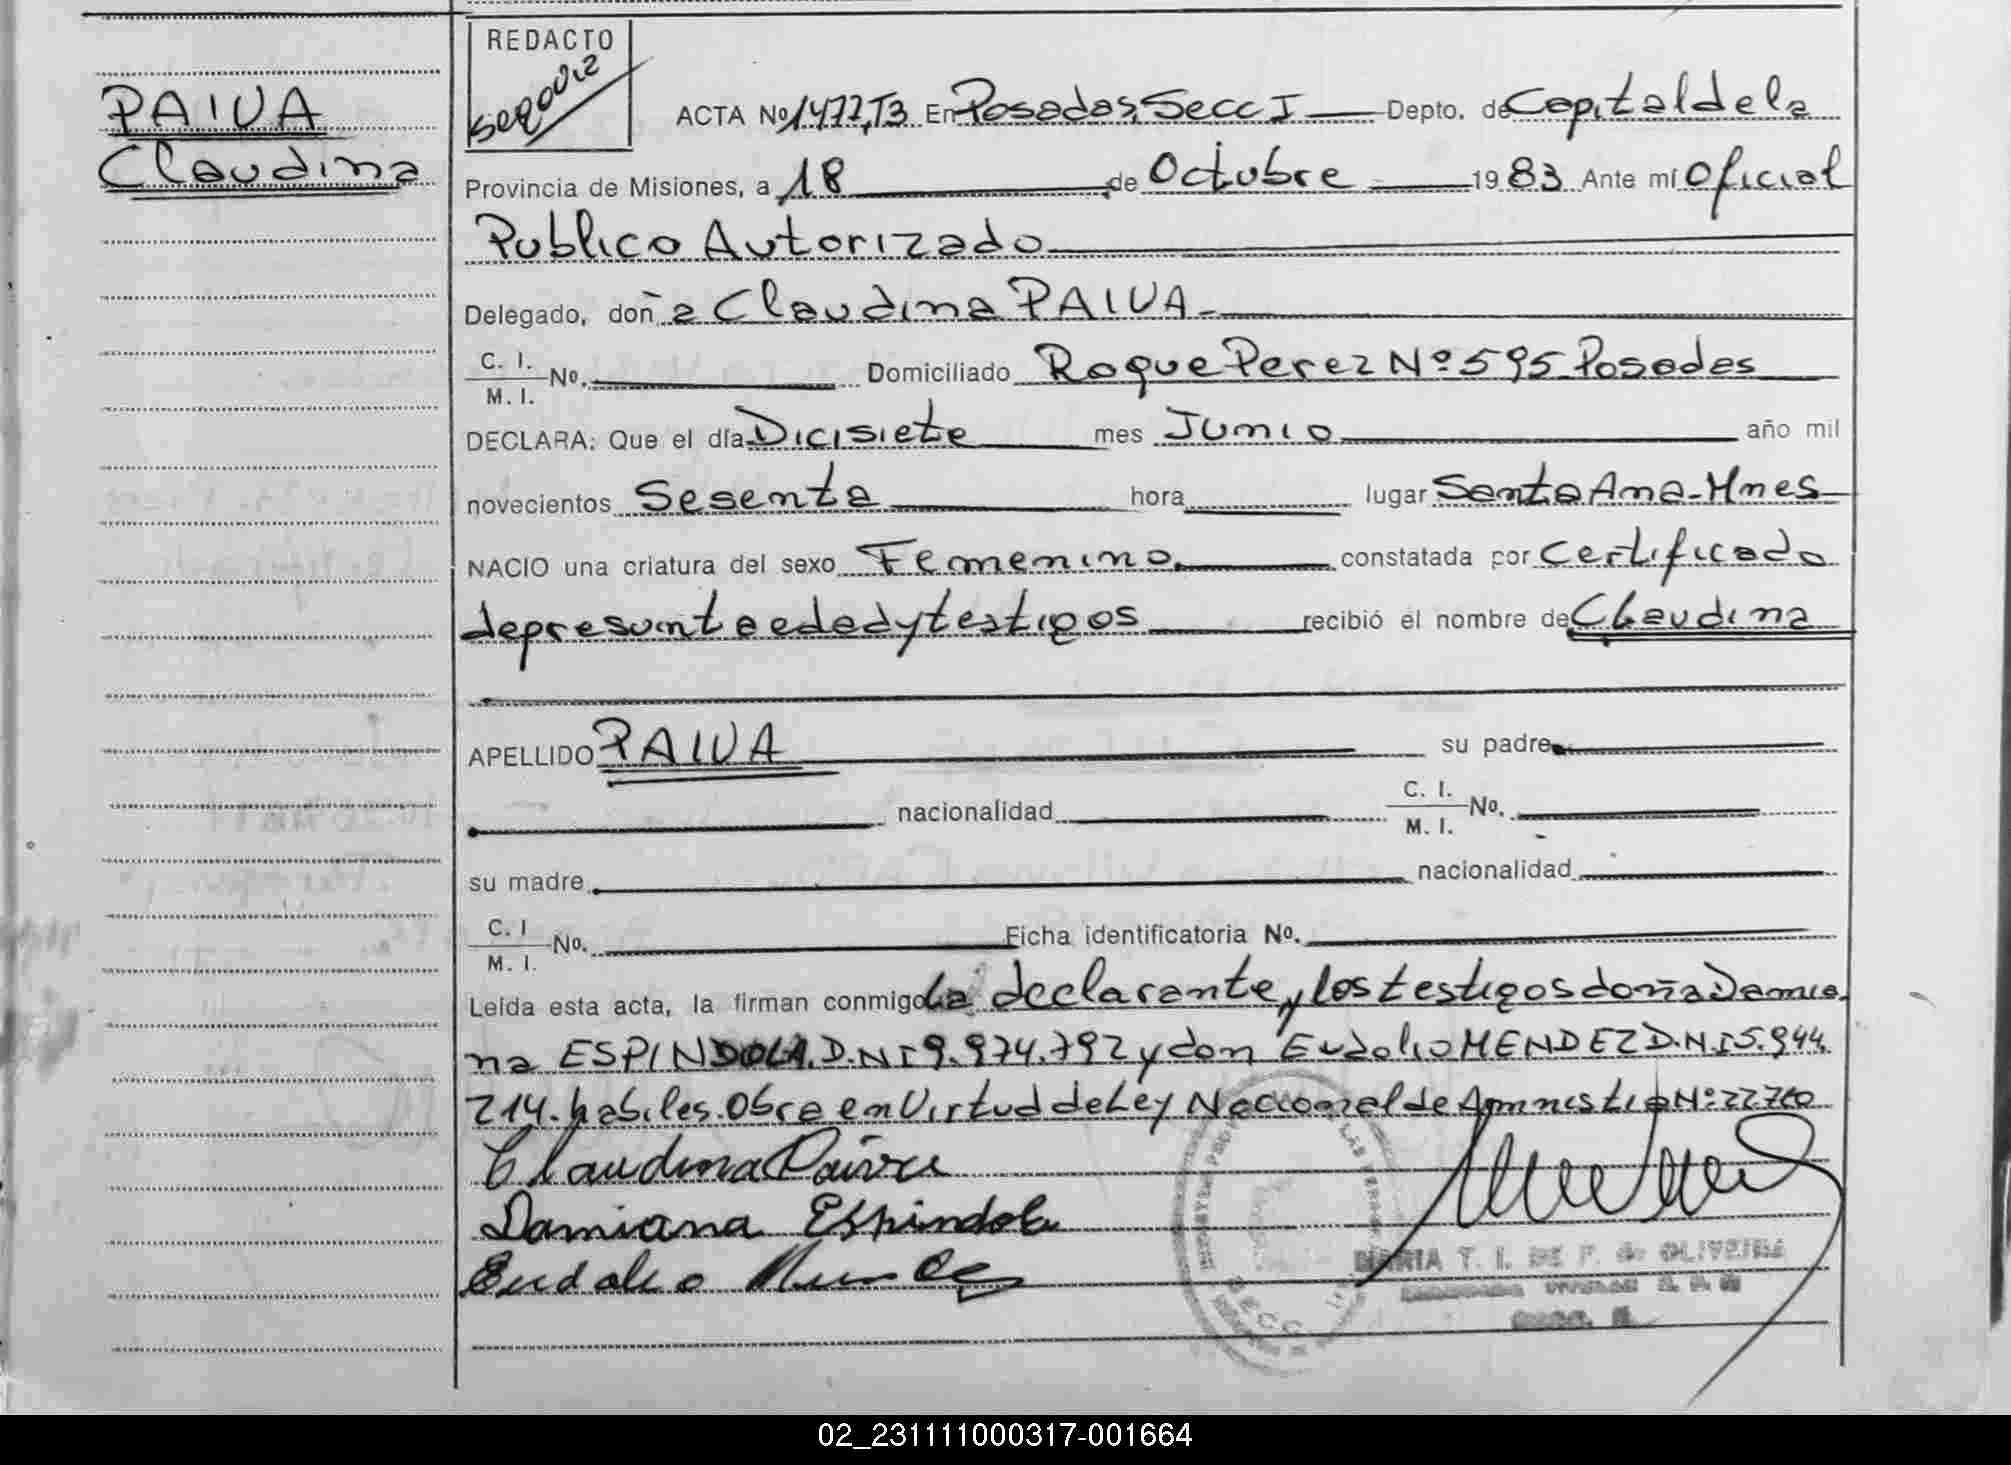 PAIVA
Claudina
REDACTO
Segovia
ACTA Nº 1477,T3 En Posadas, Secc I Depto. de Capital de la
Provincia de Misiones, a 18 de Octubre 1983 Ante mí Oficial
Publico Autorizado
Delegado, doña Claudina PAIVA.
C. I.
M. I. No. Domiciliado Roque Perez Nº 595 Posadas
DECLARA: Que el día Dicisiete mes Junio año mil
novecientos Sesenta hora lugar Santa Ana-Mnes
NACIO una criatura del sexo Femenino. constatada por Certificado
de presunta edad y testigos recibió el nombre de Claudina
APELLIDO PAIVA su padre
nacionalidad C. I.
M. I. No.
su madre nacionalidad
C. I
M. I. No. Ficha identificatoria No.
Leída esta acta, la firman conmigo la declarante y los testigos doña Damia
na ESPINDOLA. D.N.I 9.974.792 y don Eudolio MENDEZ D.N.I 5.944.
214. habiles. Obra en Virtud de Ley Nacional de Amnistia Nº 22760
Claudina Paiva
Damiana Espindola
Eudolio Mendez
MARIA T. I. DE F. de OLIVEIRA
SECC.
02_231111000317-001664